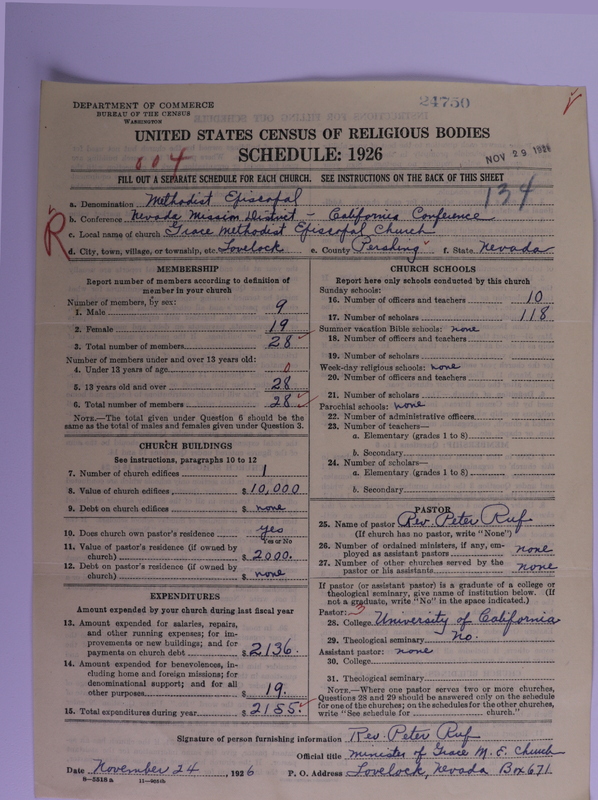 24750
DEPARTMENT OF COMMERCE
BUREAU OF THE CENSUS
WASHINGTON
UNITED STATES CENSUS OF RELIGIOUS BODIES
SCHEDULE: 1926
604
NOV 29 1926
FILL OUT A SEPARATE SCHEDULE FOR EACH CHURCH. SEE INSTRUCTIONS ON THE BACK OF THIS SHEET
134
a. Denomination Methodist Episcopal
b. Conference Nevada Mission District - California Conference
c. Local name of church Grace Methodist Episcopal Church
R
d. City, town, village, or township, etc. Lovelock e. County Pershing f. State Nevada
MEMBERSHIP
Report number of members according to definition of
member in your church
Number of members, by sex:
1. Male 9
2. Female 19
3. Total number of members 28
Number of members under and over 13 years old:
4. Under 13 years of age 0
5. 13 years old and over 28
6. Total number of members 28
NOTE.—The total given under Question 6 should be the
same as the total of males and females given under Question 3.
CHURCH BUILDINGS
See instructions, paragraphs 10 to 12
7. Number of church edifices 1
8. Value of church edifices $10,000
9. Debt on church edifices $ none
10. Does church own pastor's residence yes
Yes or No
11. Value of pastor's residence (if owned by
church) $2000.
12. Debt on pastor's residence (if owned by
church) $ none
EXPENDITURES
Amount expended by your church during last fiscal year
13. Amount expended for salaries, repairs,
and other running expenses; for im-
provements or new buildings; and for
payments on church debt $2136.
14. Amount expended for benevolences, in-
cluding home and foreign missions; for
denominational support; and for all
other purposes $19.
15. Total expenditures during year $2155.
CHURCH SCHOOLS
Report here only schools conducted by this church
Sunday schools:
16. Number of officers and teachers 10
17. Number of scholars 118
Summer vacation Bible schools: none
18. Number of officers and teachers
19. Number of scholars
Week-day religious schools: none
20. Number of officers and teachers
21. Number of scholars
Parochial schools: none
22. Number of administrative officers
23. Number of teachers—
a. Elementary (grades 1 to 8)
b. Secondary
24. Number of scholars—
a. Elementary (grades 1 to 8)
b. Secondary
PASTOR
25. Name of pastor Rev. Peter Ruf
(If church has no pastor, write "None")
26. Number of ordained ministers, if any, em-
ployed as assistant pastors none
27. Number of other churches served by the
pastor or his assistants none
If pastor (or assistant pastor) is a graduate of a college or
theological seminary, give name of institution below. (If
not a graduate, write "No" in the space indicated.)
Pastor: 3
28. College University of California
29. Theological seminary No.
Assistant pastor: none
30. College
31. Theological seminary
NOTE.—Where one pastor serves two or more churches,
Questions 28 and 29 should be answered only on the schedule
for one of the churches; on the schedules for the other churches,
write "See schedule for church."
Signature of person furnishing information Rev. Peter Ruf
Official title Minister of Grace M. E. Church
Date November 24, 1926 P. O. Address Lovelock, Nevada Box 671
8-5318a